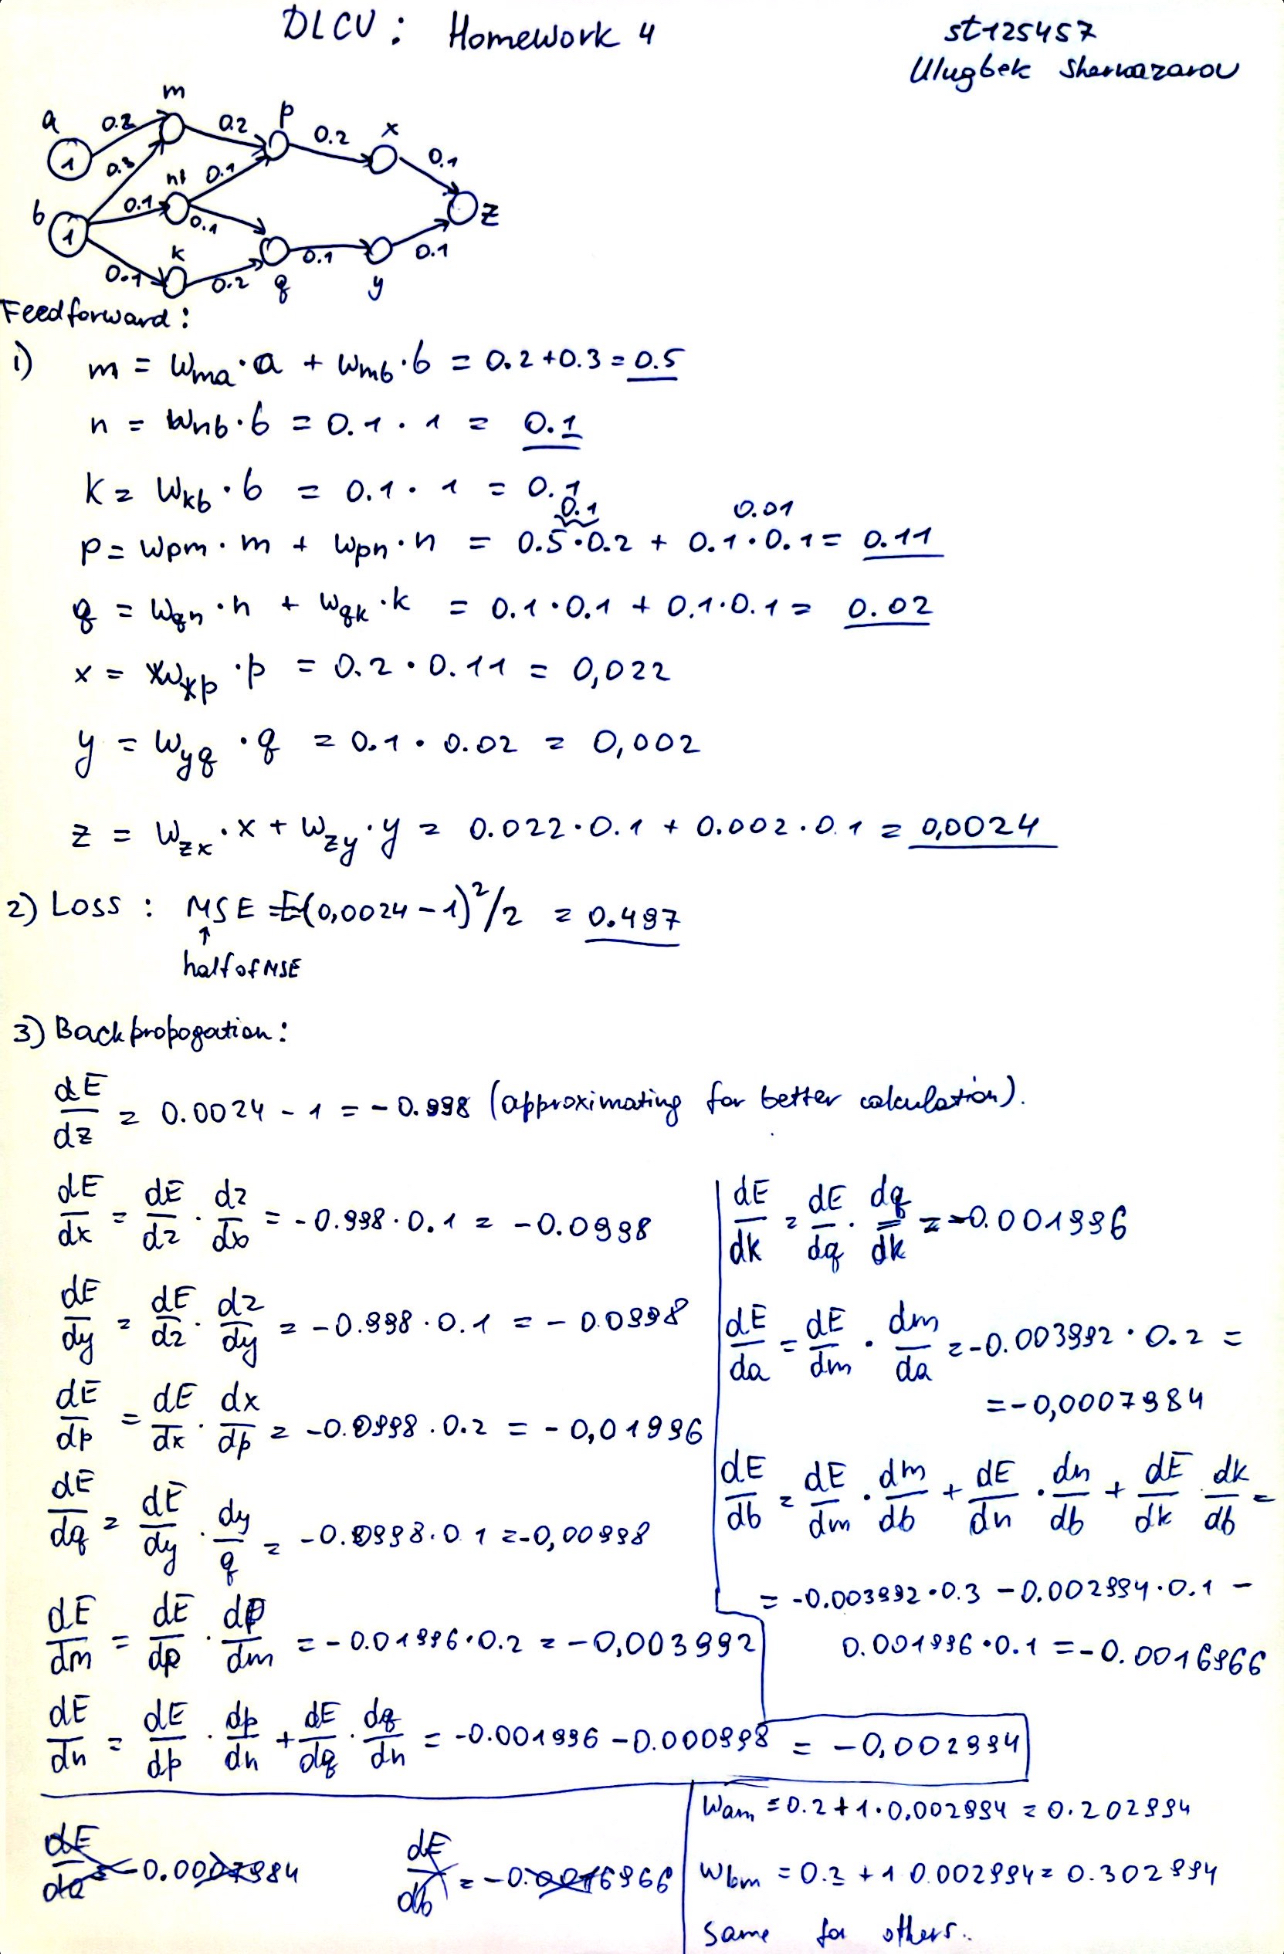 DLCV : Homework 4
st125457
Ulugbek Shernazarov
a 1 b 1 m n k p q x y z
0.2 0.3 0.1 0.1 0.2 0.1 0.1 0.2 0.2 0.1 0.1 0.1
Feedforward:
1) m = Wma · a + Wmb · b = 0.2 + 0.3 = 0.5
n = Wnb · b = 0.1 · 1 = 0.1
k = Wkb · b = 0.1 · 1 = 0.1
0.1 0.01
p = Wpm · m + Wpn · n = 0.5 · 0.2 + 0.1 · 0.1 = 0.11
q = Wqn · n + Wqk · k = 0.1 · 0.1 + 0.1 · 0.1 = 0.02
x = Wxp · p = 0.2 · 0.11 = 0,022
y = Wyq · q = 0.1 · 0.02 = 0,002
z = Wzx · x + Wzy · y = 0.022 · 0.1 + 0.002 · 0.1 = 0,0024
2) Loss : MSE = E(0,0024 - 1)²/2 = 0.497
↑
half of MSE
3) Backpropogation:
dE/dz = 0.0024 - 1 = -0.998 (approximating for better calculation).
dE/dx = dE/dz · dz/dx = -0.998 · 0.1 = -0.0998
dE/dy = dE/dz · dz/dy = -0.998 · 0.1 = -0.0998
dE/dp = dE/dx · dx/dp = -0.0998 · 0.2 = -0,01996
dE/dq = dE/dy · dy/q = -0.0998 · 0.1 = -0,00998
dE/dm = dE/dp · dp/dm = -0.01996 · 0.2 = -0,003992
dE/dn = dE/dp · dp/dn + dE/dq · dq/dn = -0.001996 - 0.000998 = -0,002994
dE/dk = dE/dq · dq/dk = -0.001996
dE/da = dE/dm · dm/da = -0.003992 · 0.2 =
= -0,0007984
dE/db = dE/dm · dm/db + dE/dn · dn/db + dE/dk dk/db =
= -0.003992 · 0.3 - 0.002994 · 0.1 -
0.001996 · 0.1 = -0.0016966
dE/da = -0.0007984
dE/db = -0.0016966
Wam = 0.2 + 1 · 0,002994 = 0.202994
Wbm = 0.3 + 1 · 0.002994 = 0.302994
same for others..